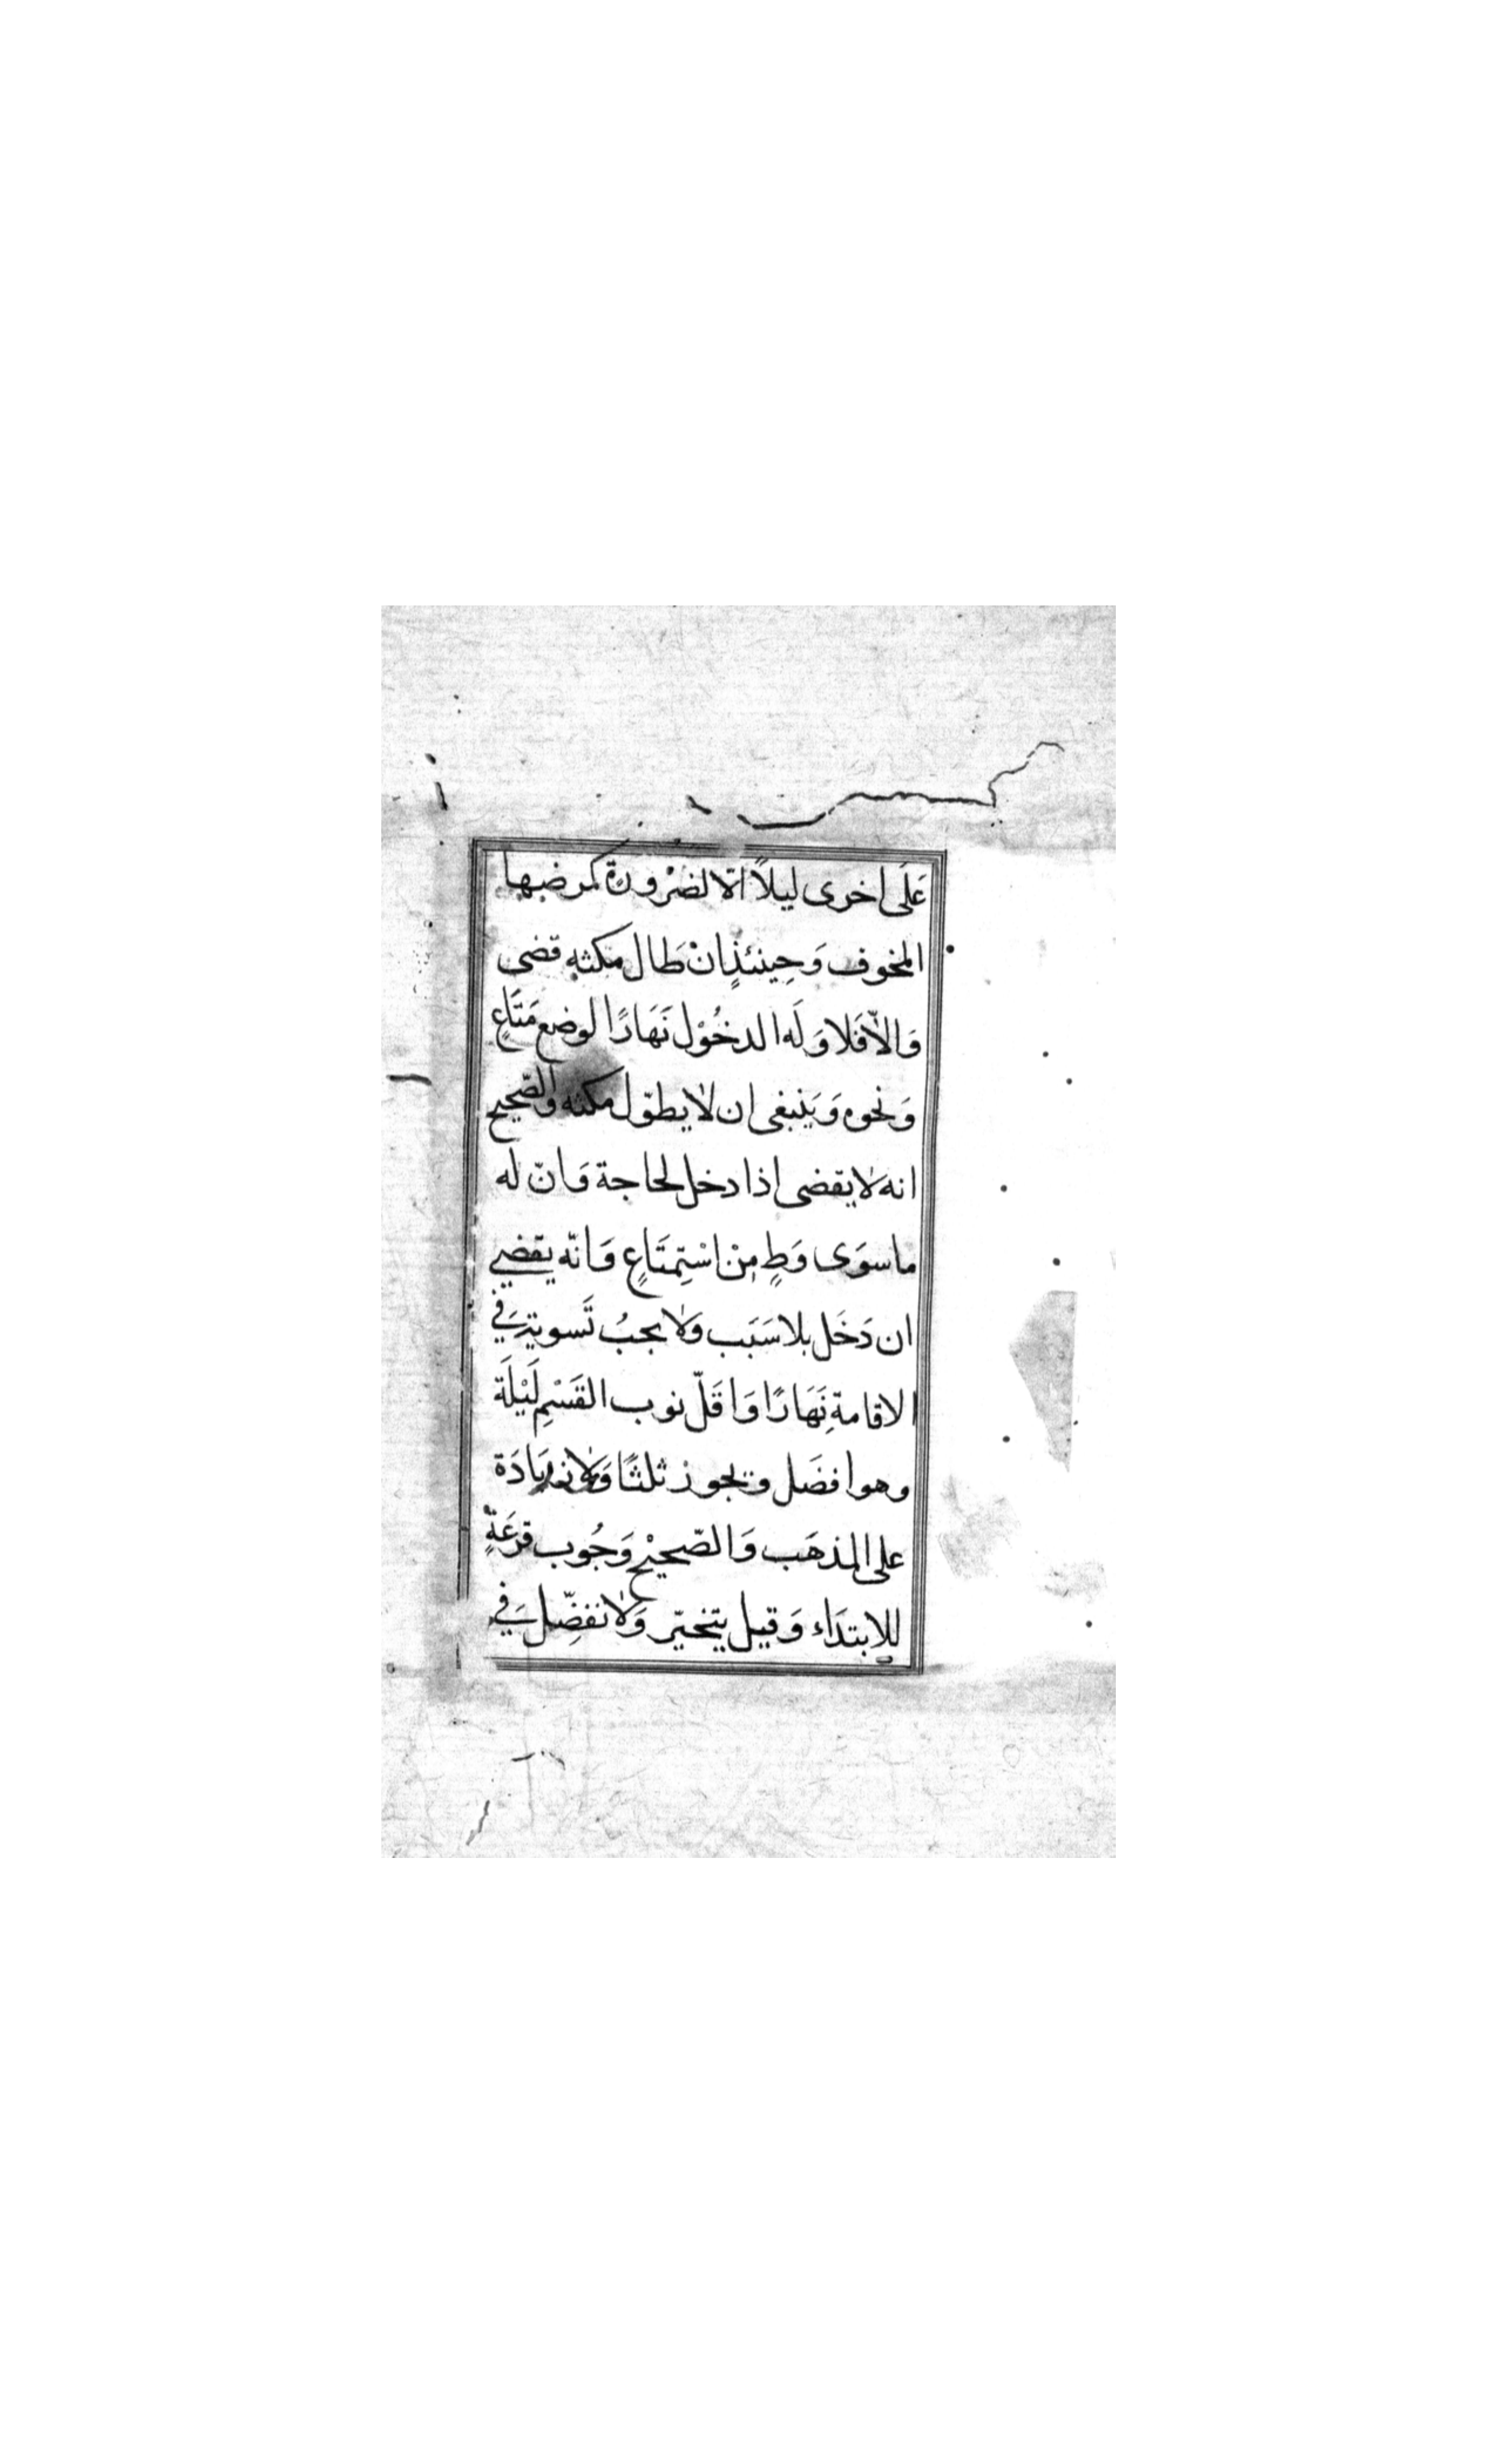 عَلَى اخرى ليلاً الّا لضرْورة كمرضها
المخوف وَحِينئذٍ انْ طَال مكثه قضى
وَالّا فَلا وَلَه الدخُوْل نَهَارًا لوضع مَتَاعٍ
وَنحوه وَيَنبغى ان لا يطوّل مكثه والصّحيح
انه لا يقضى اذا دخل لحاجة وَانّ له
ما سوَى وَطٍ مِنْ اسْتِمتَاعٍ وَانّه يقضي
ان دَخَل بلا سَبَب وَلا يجبُ تَسويته في
الاقامة نَهَارًا وَاقَلّ نوب القَسْمِ لَيْلَة
وهو افضَل ويجوز ثلثًا وَلا زيَادَة
على المذهَب وَالصّحيحْ وَجُوب قرعَةٍ
للابتدَاء وَقيل يتخيّر وَلا نفضِّل في